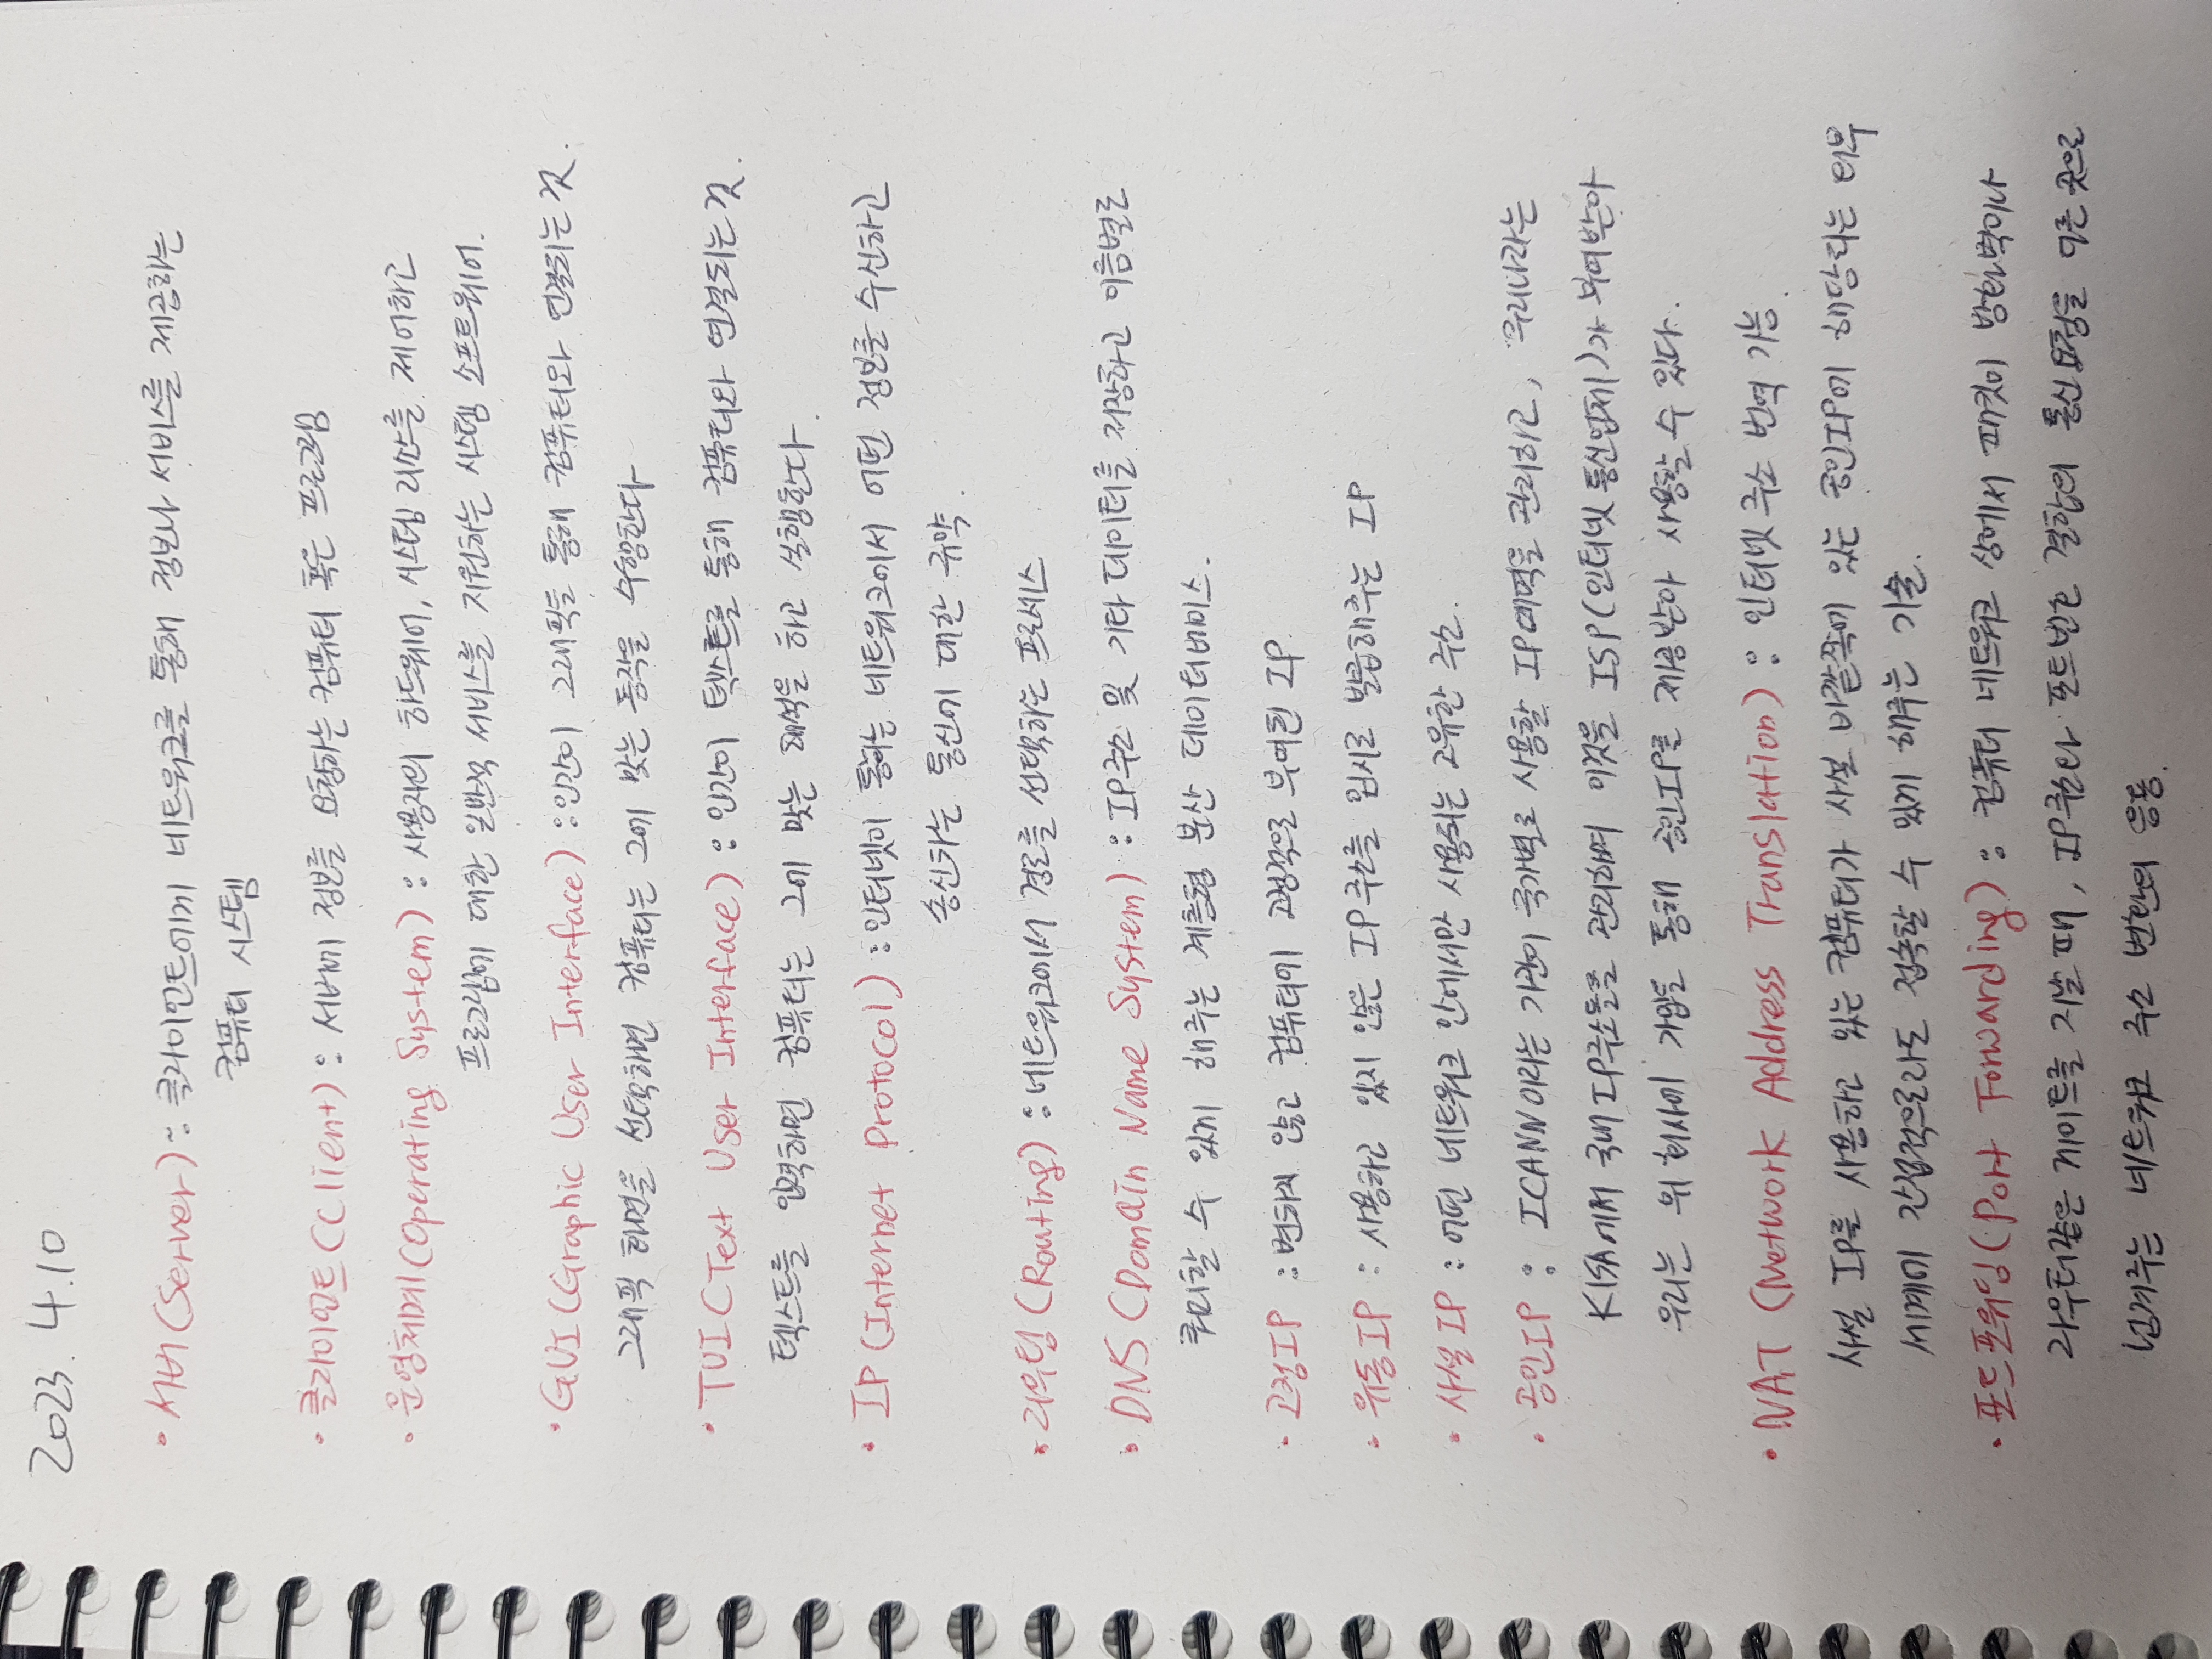 2023. 4.10
• 서버(Server) : 클라이언트에게 네트워크를 통해 정보나 서비스를 제공하는
컴퓨터 시스템
• 클라이언트(Client) : 서버에 정보를 요청하는 컴퓨터 혹은 프로그램
• 운영체제(Operating System) : 사용자의 하드웨어, 시스템 리소스를 제어하고
프로그램에 대한 일반적 서비스를 지원하는 시스템 소프트웨어.
• GUI(Graphic User Interface) : 인간이 그래픽을 통해 컴퓨터와 연결되는 것.
그래픽 화면을 선택하면 컴퓨터는 그에 맞는 동작을 수행한다
• TUI(Text User Interface) : 인간이 텍스트를 통해 컴퓨터와 연결되는 것.
텍스트를 입력하면 컴퓨터는 그에 맞는 해석을 하고 실행한다.
• IP(Internet Protocol) : 인터넷이 통하는 네트워크에서 어떤 정보를 수신하고
송신하는 통신에 대한 규약.
• 라우팅(Routing) : 네트워크에서 경로를 선택하는 프로세스
• DNS(Domain Name System) : IP주소 및 기타 데이터를 저장하고 이름별로
쿼리할 수 있게 해주는 계층형 분산 데이터베이스.
• 고정IP : 변하지 않고 컴퓨터에 고정적으로 부여된 IP
• 유동IP : 사용하고 있지 않은 IP주소를 임시로 발급해주는 IP
• 사설IP : 어떤 네트워크 안에서만 사용되는 고유한 주소.
• 공인IP : ICANN이라는 기관이 국가별로 사용할 IP대역을 관리하고, 우리나라는
KISA에서 국내IP주소들을 관리하며 이것을 ISP(인터넷 통신업체)가 부여받아
우리는 위 회사에 가입을 통해 공인IP를 제공받아 사용할 수 있다.
• NAT (Network Address Translation) : 인터넷 주소 번역 가능.
사설 IP를 사용하고 있는 컴퓨터가 사설 바깥쪽에 있는 공인IP에 해당하는 외부
세계에 간접적으로라도 접속할 수 있게 해주는 기술.
• 포트포워딩(Port Forwarding) : 컴퓨터 네트워크 상에서 패킷이 방화벽이나
라우터같은 게이트를 지날 때, IP주소와 포트번호 결합의 통신요청을 다른 곳으로
넘겨주는 네트워크 주소 변환의 응용.